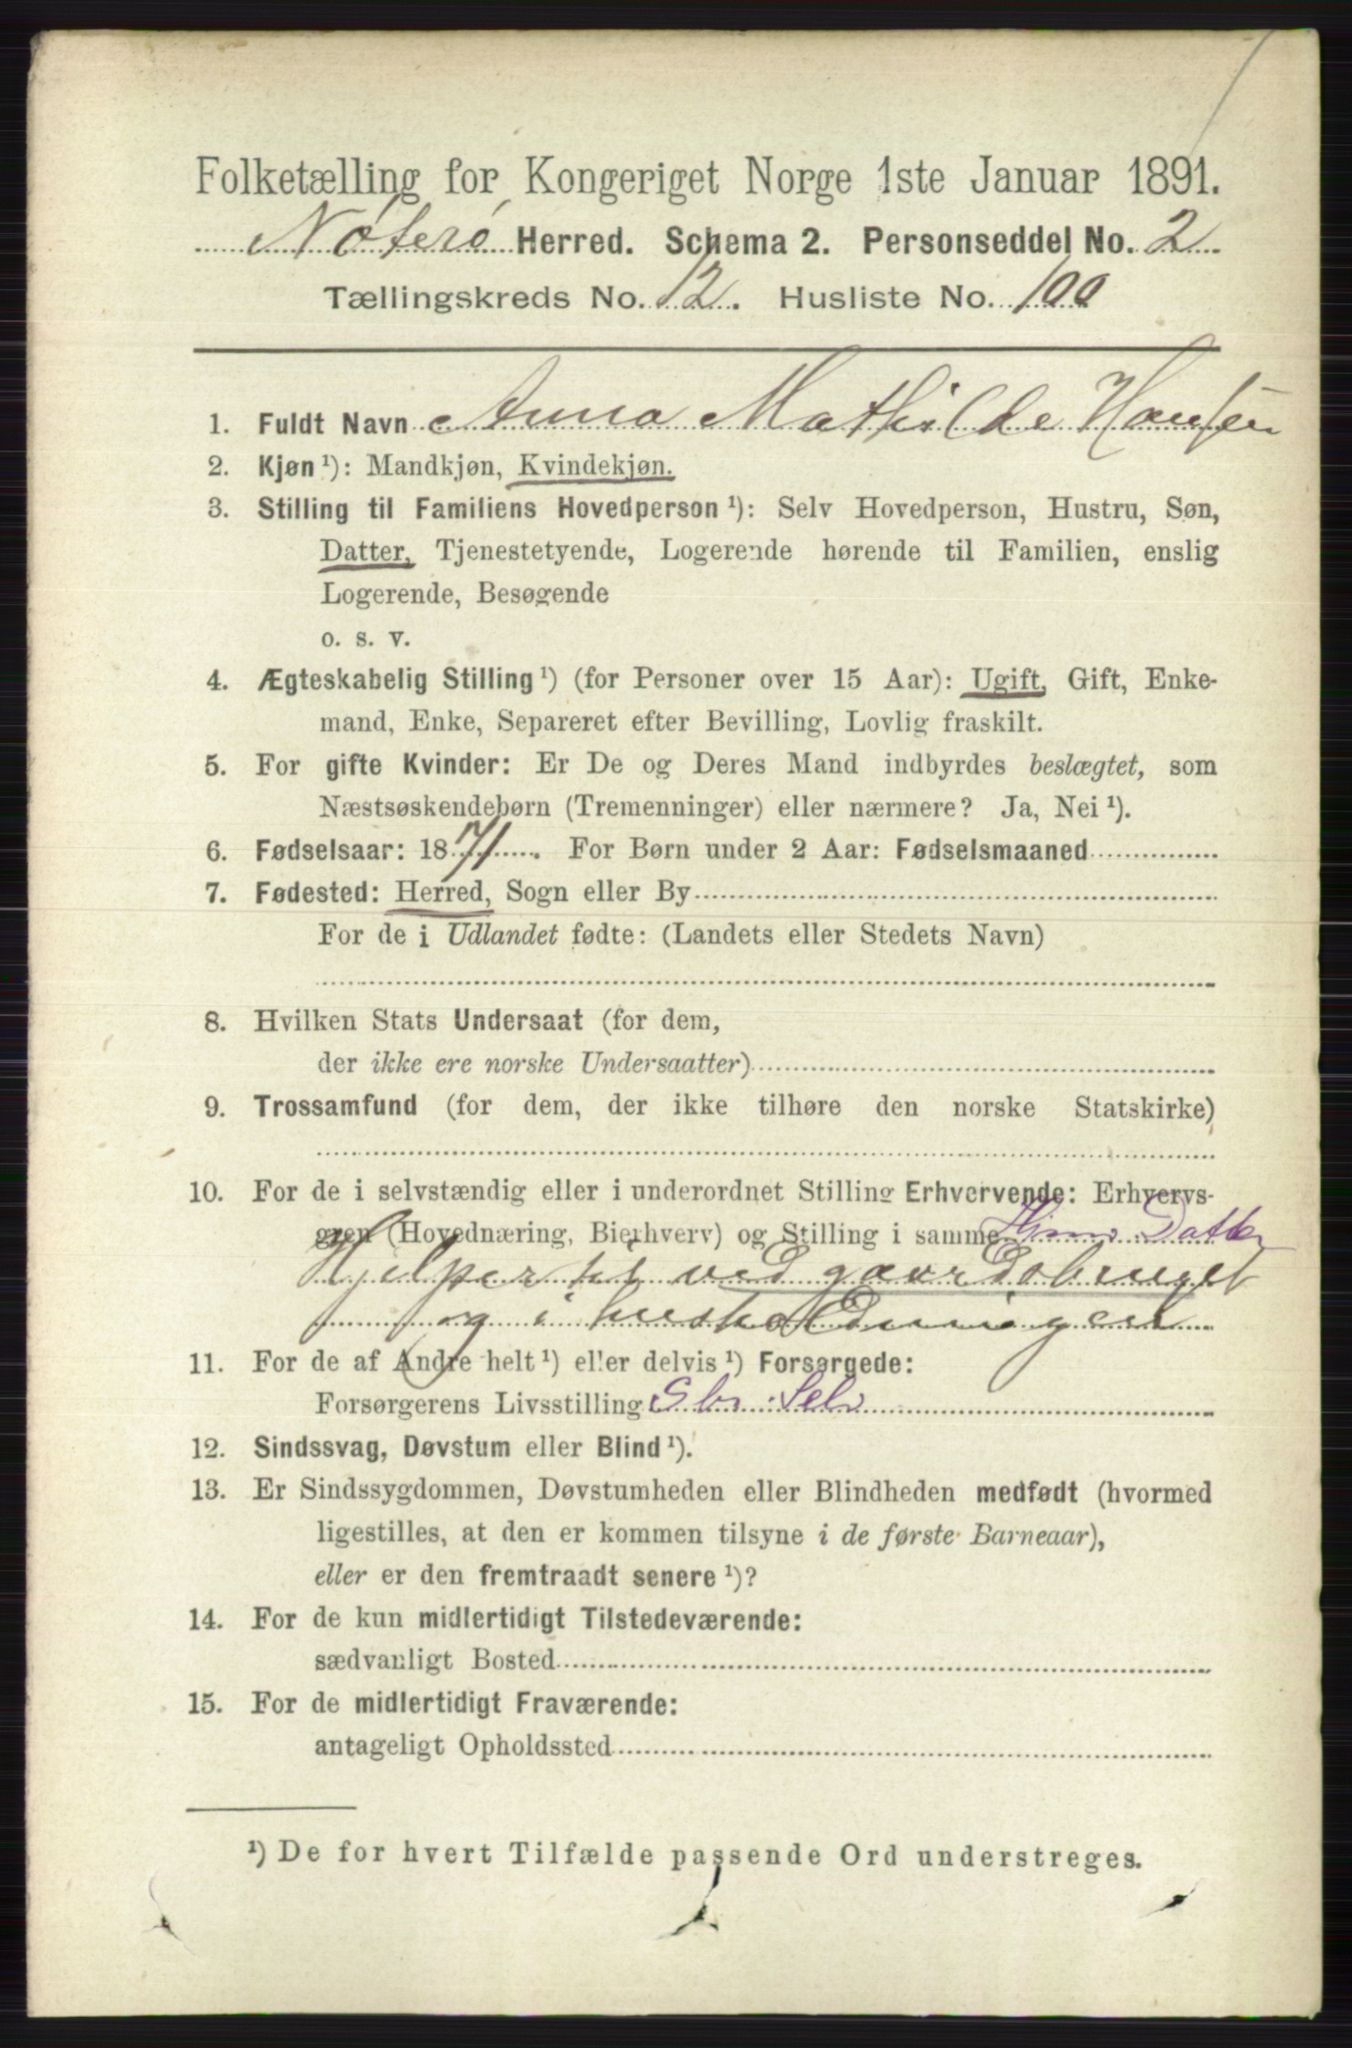 Folketælling for Kongeriget Norge 1ste Januar 1891.
Nøterø Herred. Schema 2. Personseddel No. 2
Tællingskreds No. 12. Husliste No. 100
1. Fuldt Navn Anna Mathilde Hansen
2. Kjøn¹): Mandkjøn, Kvindekjøn.
3. Stilling til Familiens Hovedperson¹): Selv Hovedperson, Hustru, Søn,
Datter, Tjenestetyende, Logerende hørende til Familien, enslig
Logerende, Besøgende
o. s. v.
4. Ægteskabelig Stilling¹) (for Personer over 15 Aar): Ugift, Gift, Enke-
mand, Enke, Separeret efter Bevilling, Lovlig fraskilt.
5. For gifte Kvinder: Er De og Deres Mand indbyrdes beslægtet, som
Næstsøskendebørn (Tremenninger) eller nærmere? Ja, Nei¹).
6. Fødselsaar: 1871. For Børn under 2 Aar: Fødselsmaaned
7. Fødested: Herred, Sogn eller By
For de i Udlandet fødte: (Landets eller Stedets Navn)
8. Hvilken Stats Undersaat (for dem,
der ikke ere norske Undersaatter)
9. Trossamfund (for dem, der ikke tilhøre den norske Statskirke)
10. For de i selvstændig eller i underordnet Stilling Erhvervende: Erhvervs-
gren (Hovednæring, Bierhverv) og Stilling i samme Datter
Hjelper til ved gaardsbruget
og i husholdningen
11. For de af Andre helt¹) eller delvis¹) Forsørgede:
Forsørgerens Livsstilling Gbr. Selv
12. Sindssvag, Døvstum eller Blind¹).
13. Er Sindssygdommen, Døvstumheden eller Blindheden medfødt (hvormed
ligestilles, at den er kommen tilsyne i de første Barneaar),
eller er den fremtraadt senere¹)?
14. For de kun midlertidigt Tilstedeværende:
sædvanligt Bosted
15. For de midlertidigt Fraværende:
antageligt Opholdssted
¹) De for hvert Tilfælde passende Ord understreges.